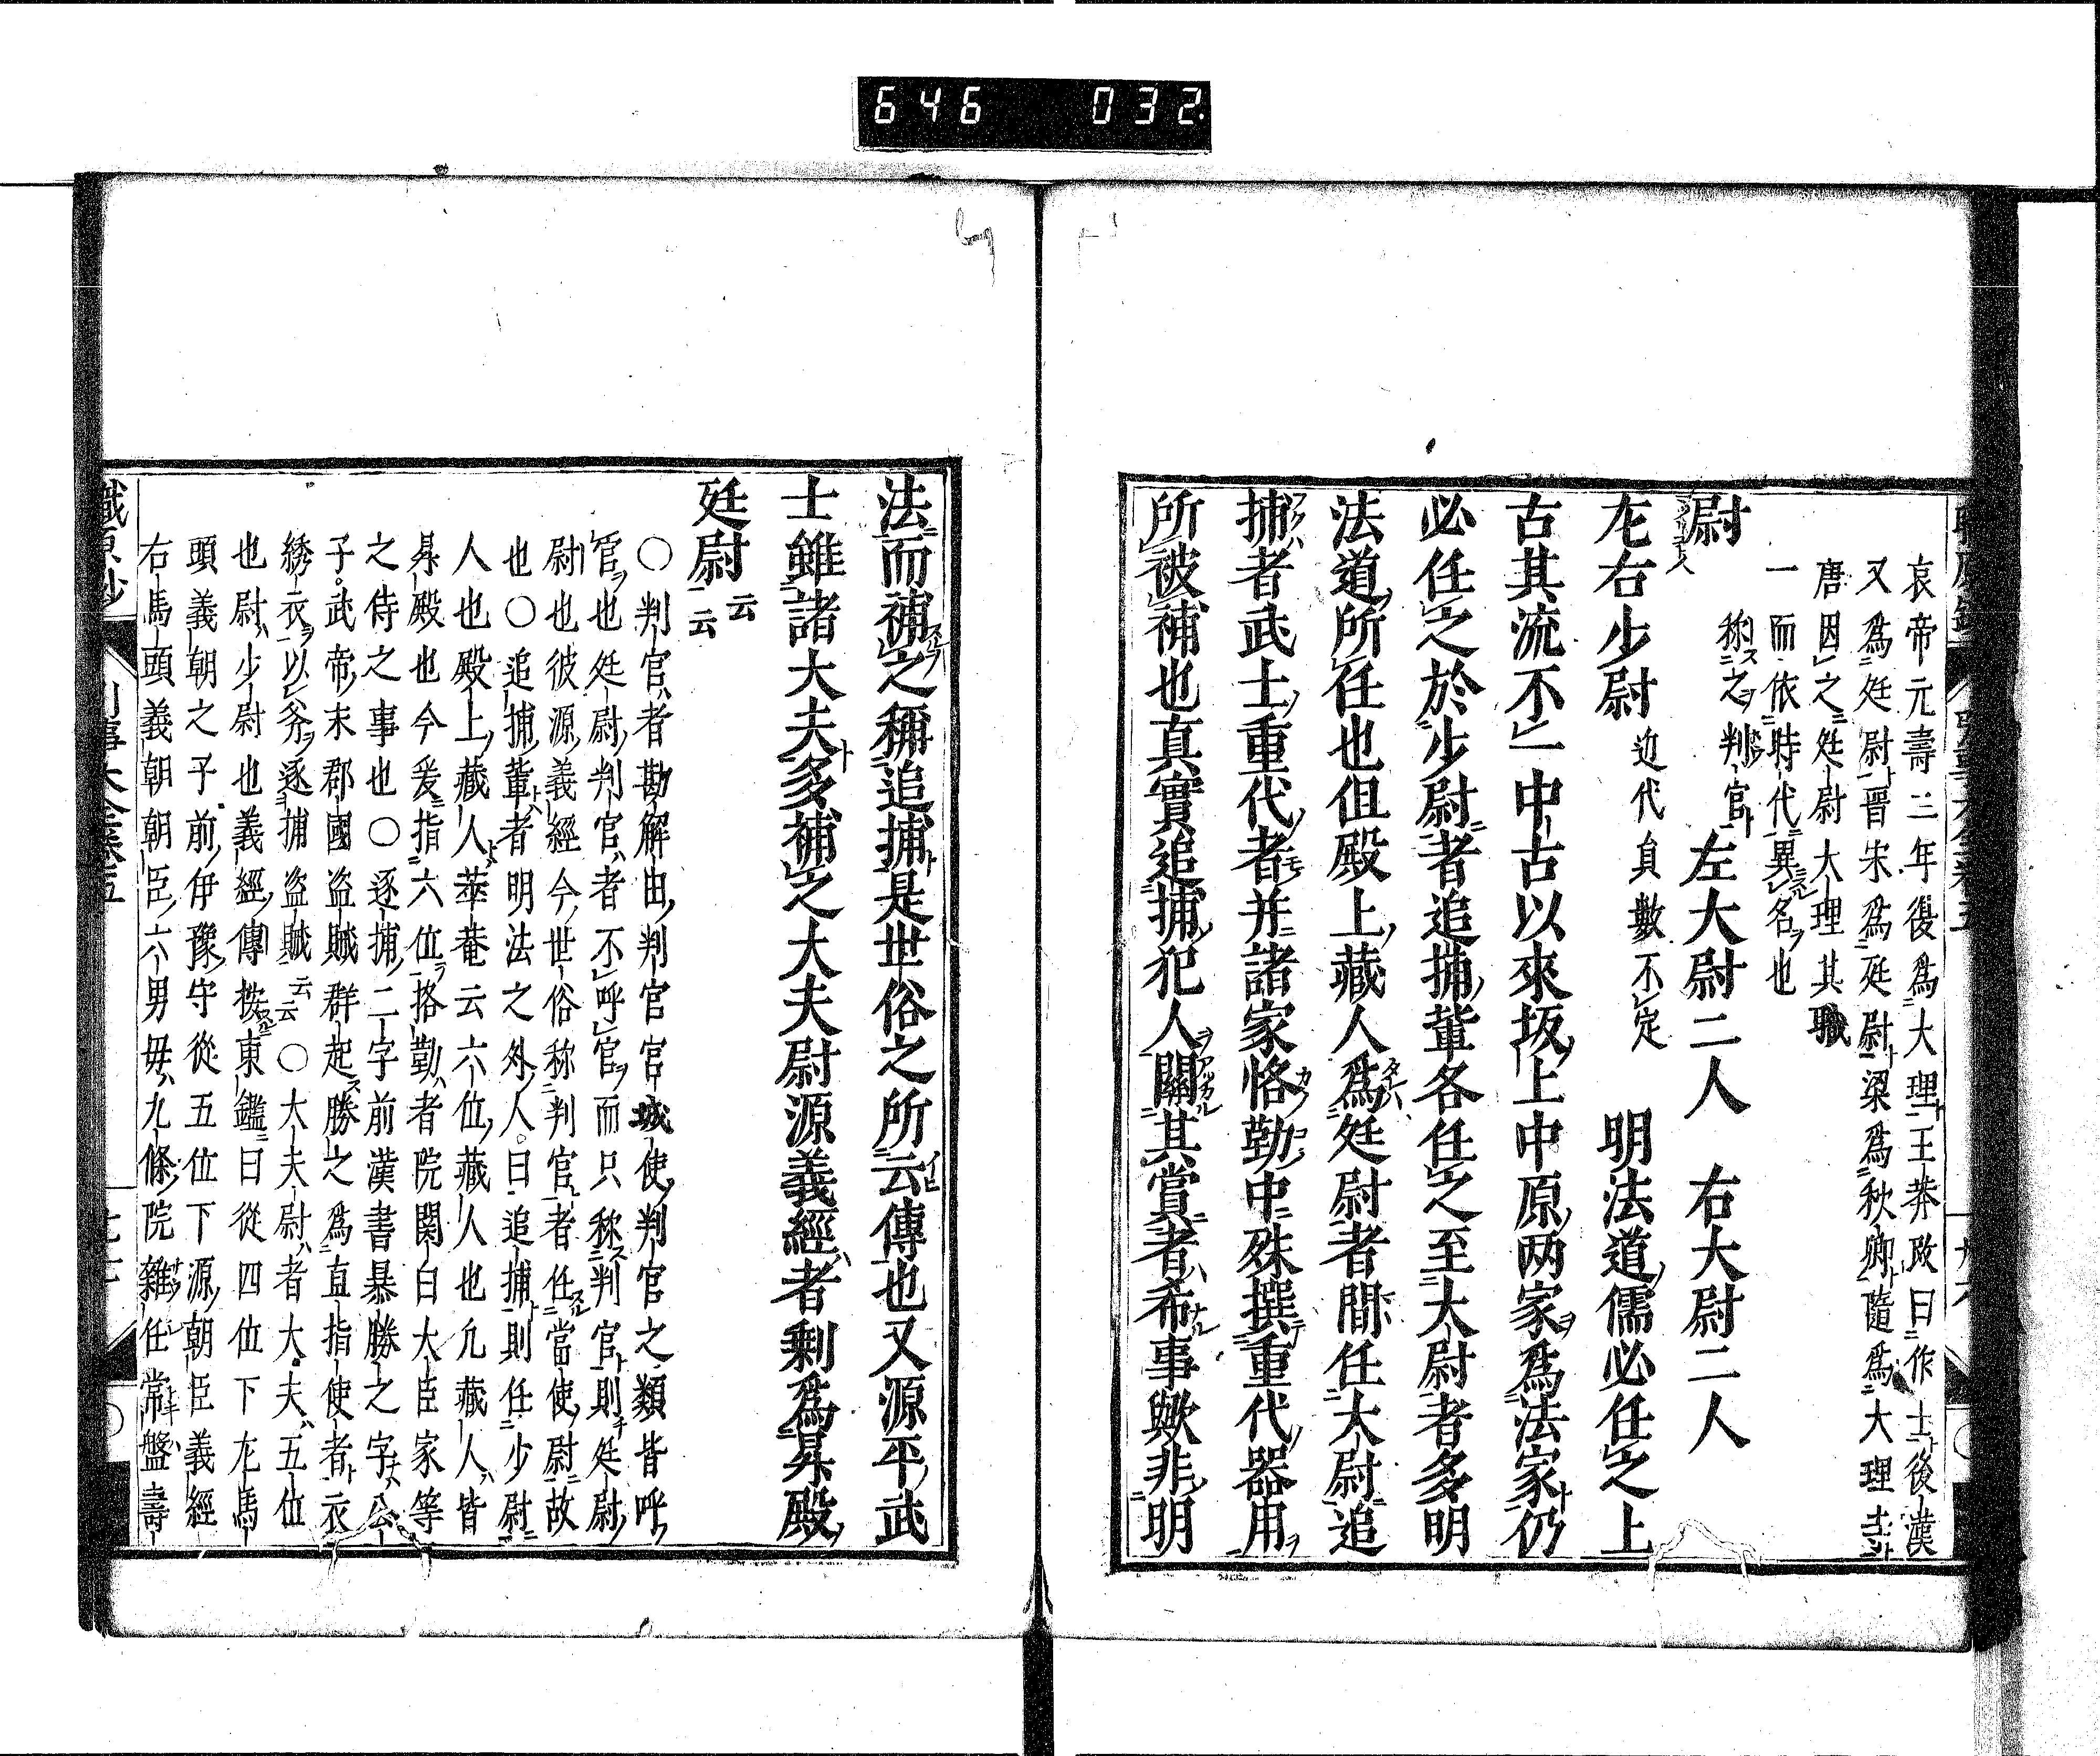 646 032
哀帝元壽二年復爲大理王莽改曰作士後漢
又爲廷尉晋宋爲廷尉梁爲秋卿隨爲大理
唐因之廷尉大理其職
一而依時代異名也
尉 称之判官 左大尉二人 右大尉二人
左右少尉 近代員數不定 明法道儒必任之上
古其流不一中古以來坂上中原两家爲法家仍
必任之於少尉者追捕輩各任之至大尉者多明
法道所任也但殿上藏人爲廷尉者間任大尉追
捕者武士重代者并諸家恪勤中殊撰重代器用
所被補也真實追捕犯人關其賞者希事歟非明
法而補之稱追捕是世俗之所云傳也又源平武
士雖諸大夫多補之大夫尉源義經者剩爲昇殿
廷尉云云
〇判官者勘解由判官官城使判官之類皆呼
官也廷尉判官者不呼官而只称判官則廷尉
尉也彼源義經今世俗称判官者任當使尉故
也〇追捕輩者明法之外人曰追捕則任少尉
人也殿上藏人華菴云六位藏人也凢藏人皆
昇殿也今爰指六位恪勤者院関白大臣家等
之侍之事也〇逐捕二字前漢書暴勝之字公
子武帝末郡國盗賊群起勝之爲直指使者衣
綉衣以斧逐捕盗賊云云〇大夫尉者大夫五位
也尉少尉也義經傳按東鑑曰從四位下左馬
頭義朝之子前伊豫守從五位下源朝臣義經
右馬頭義朝朝臣六男毋九條院雜任常盤壽